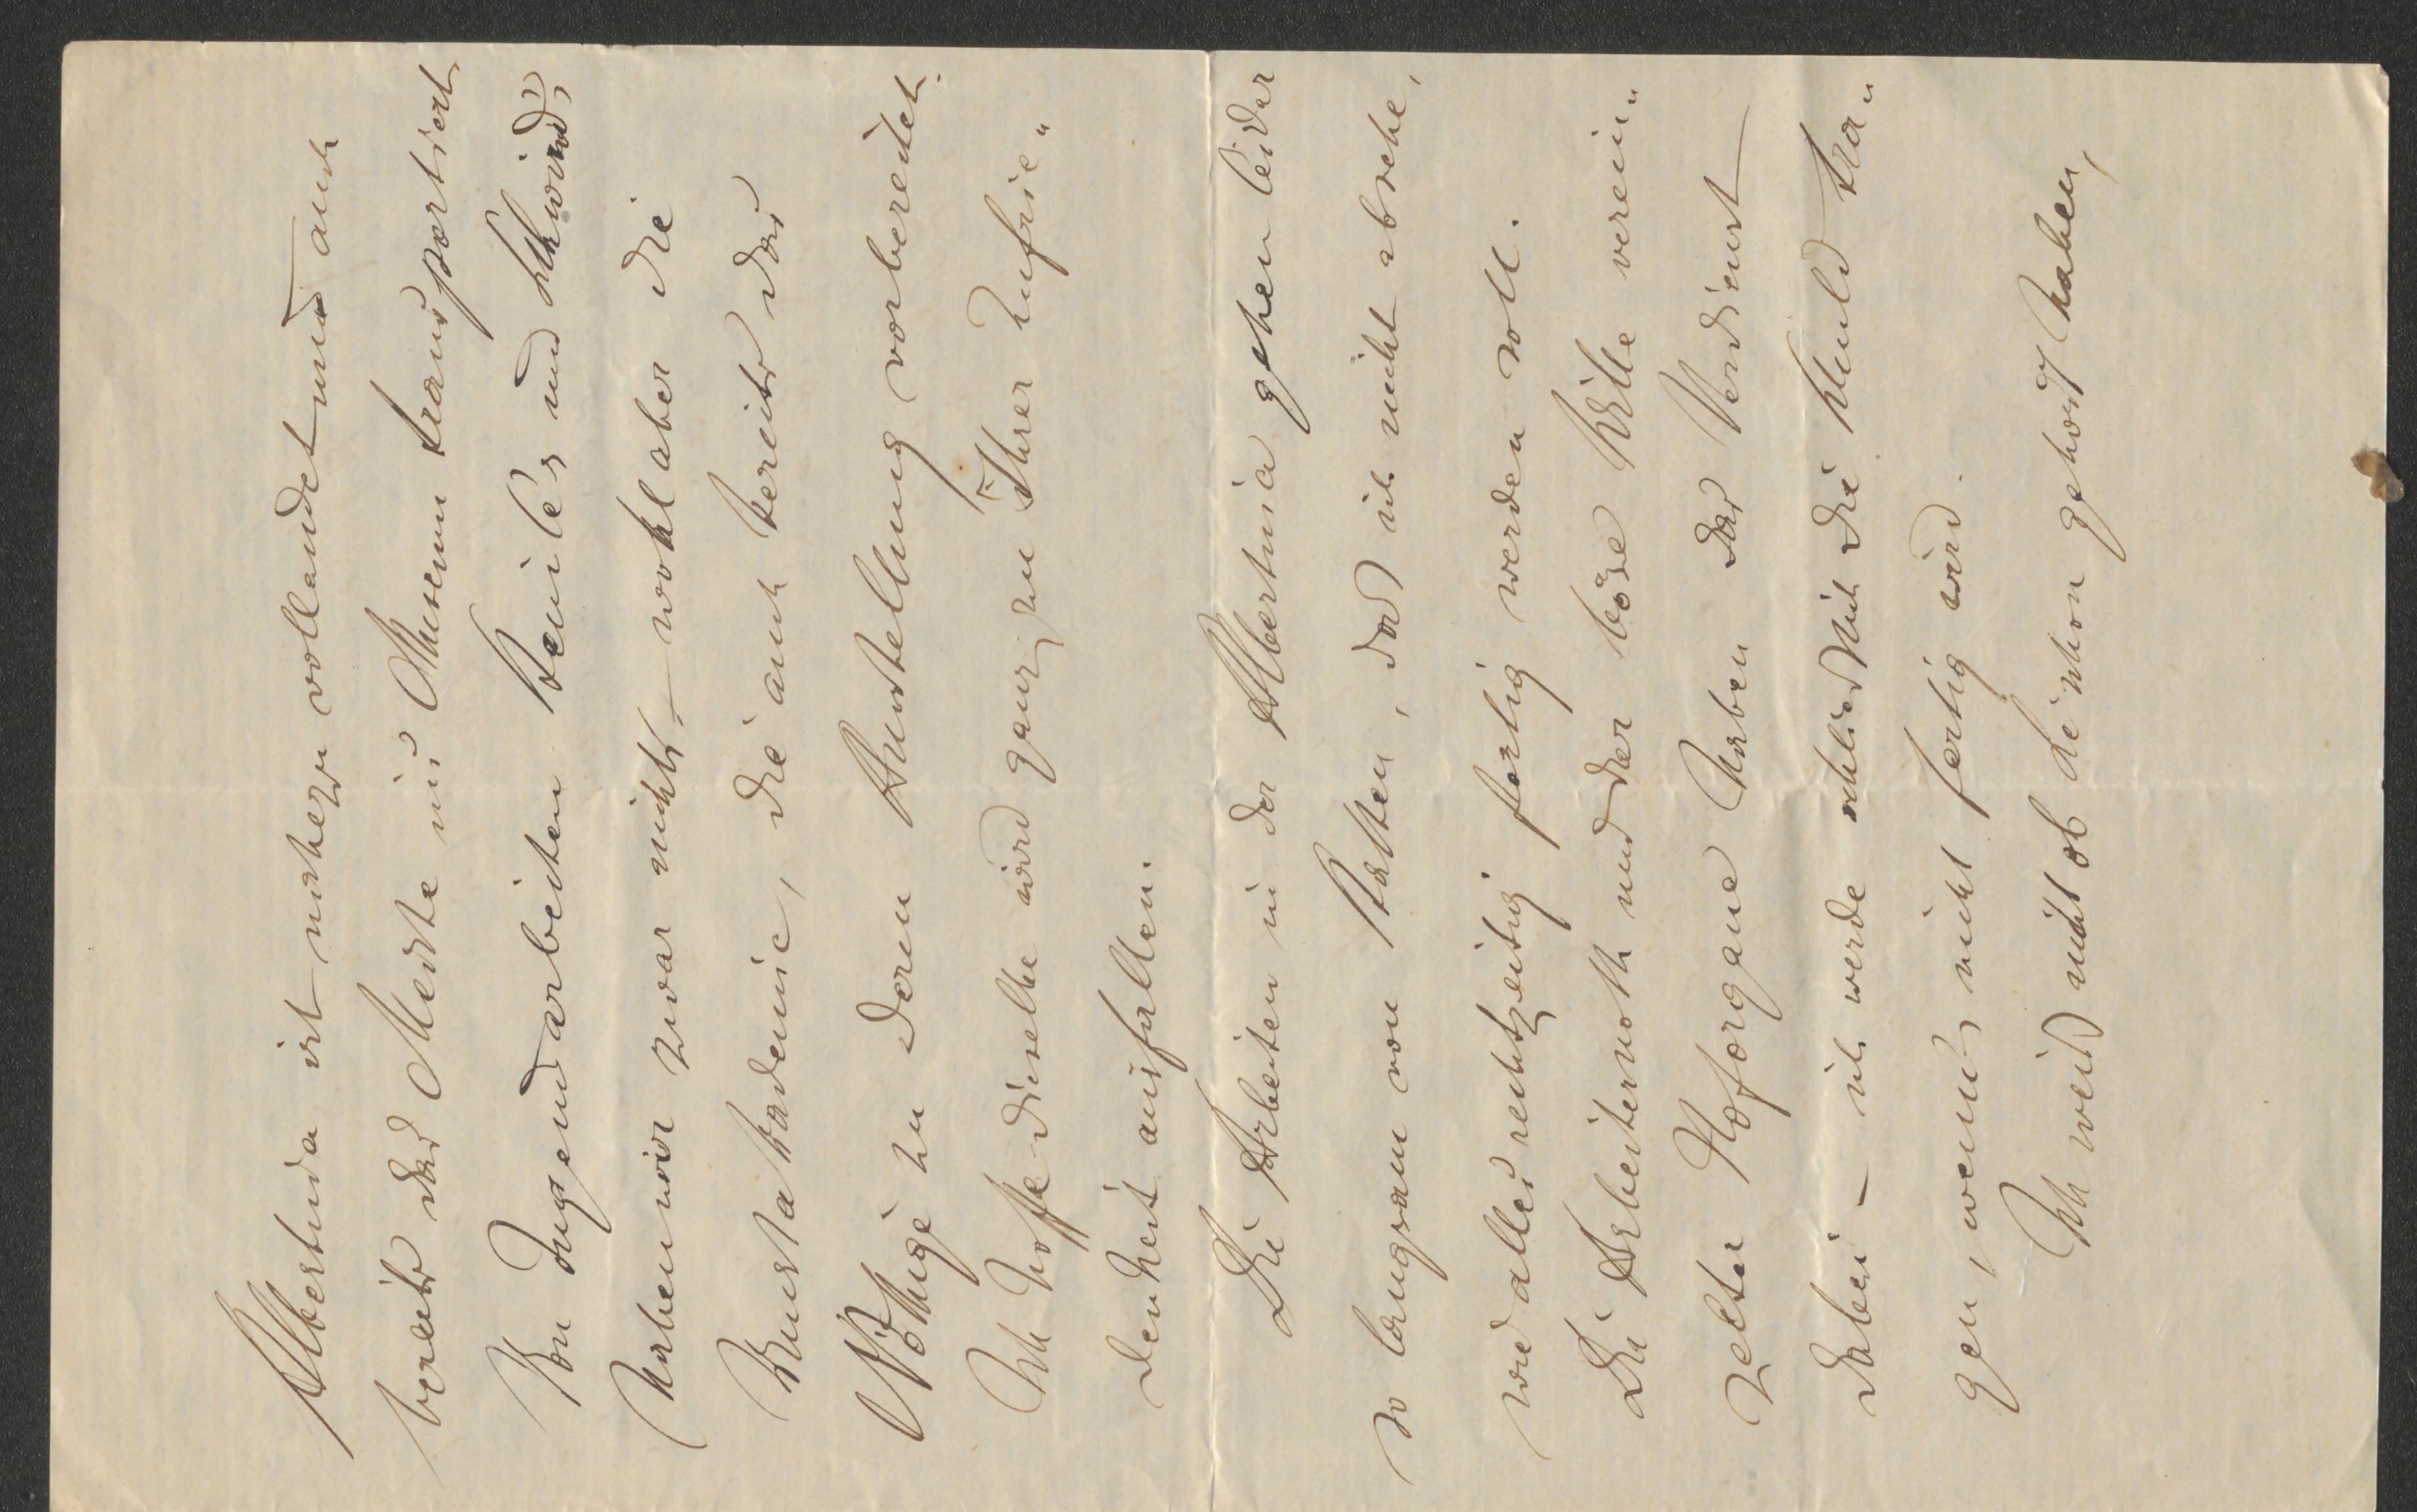 Albertina ist nahezu vollendet und auch
bereits das Meiste ins Museum transportiert
Von Jugendarbeiten Steinle's und Schwind's
haben wir zwar nichts – wohl aber die
Kunstakademie, die auch bereits das
Nöthige zu deren Ausstellung vorbereitet.
Ich hoffe dieselbe wird ganz zu Ihrer Zufrie„
denheit ausfallen.
Die Arbeiten in der Albertina gehen leider
so langsam von Statten, daß ich nicht absehe,
wie alles rechtzeitig fertig werden soll.
Die Arbeiternoth und der böse Wille verein„
zelter Hoforgane haben das Verdienst
dabei – ich werde schließlich die Schuld tra„
gen, wenn's nicht fertig wird.
Ich weiß nicht ob Sie schon gehört haben,